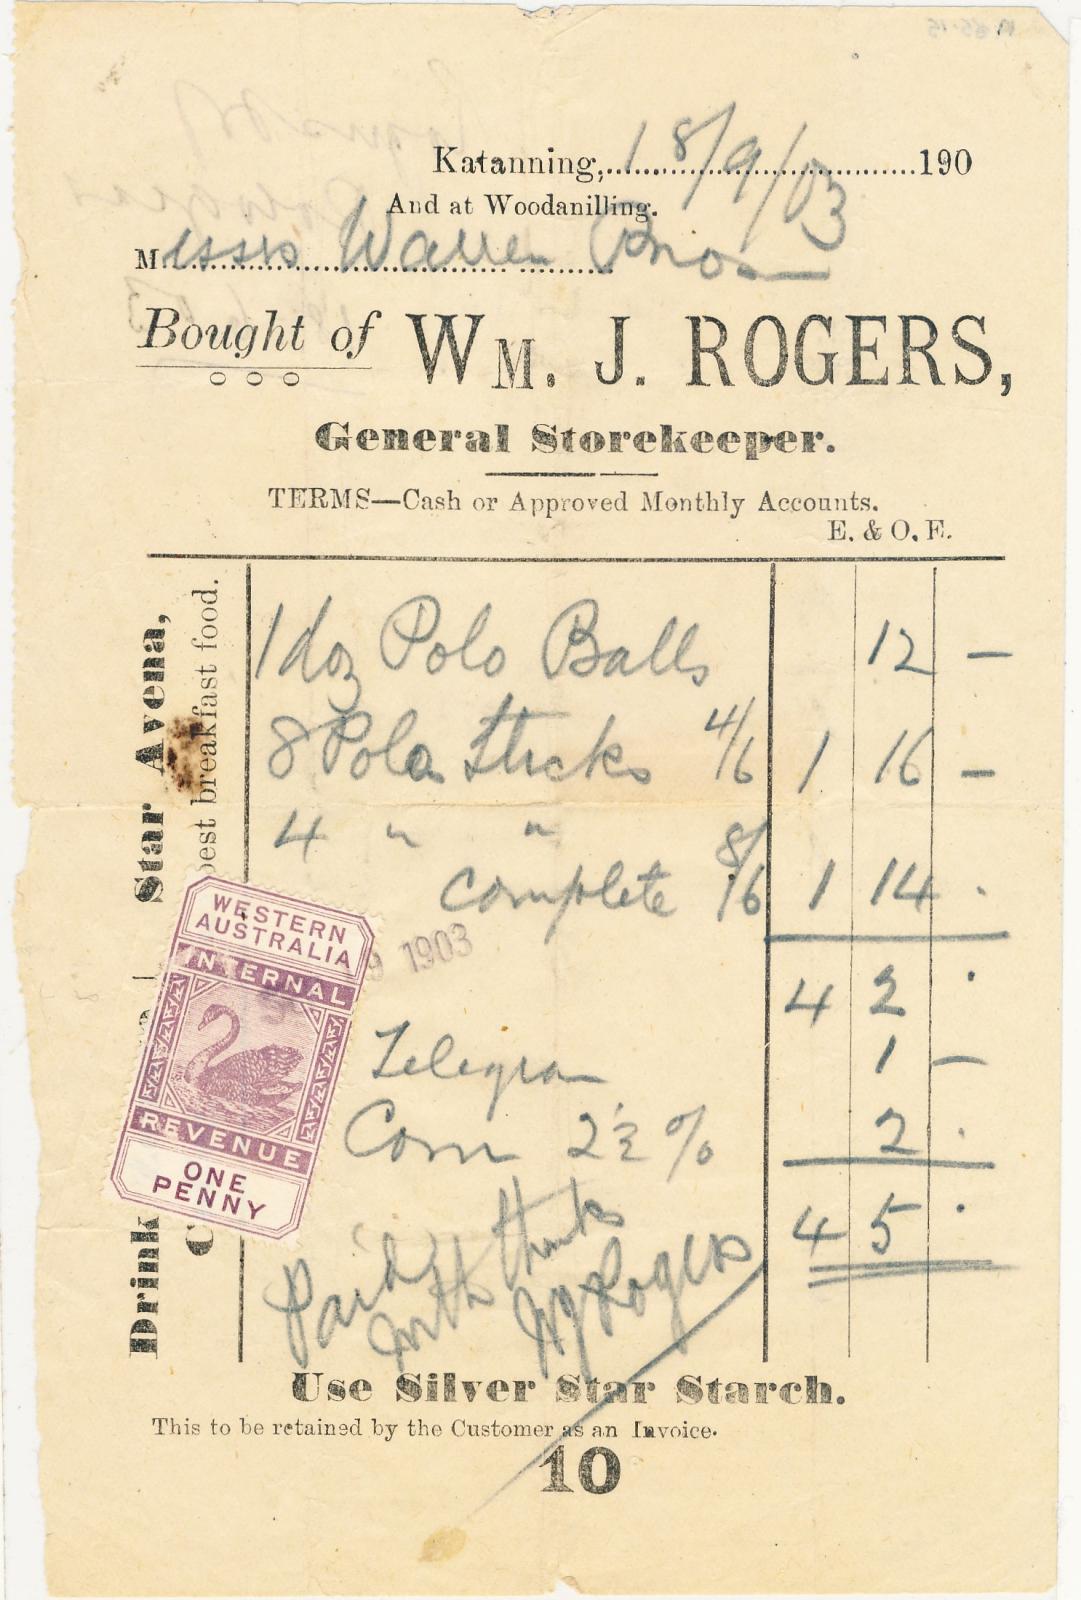 Katanning, 18/9/03 190
And at Woodanilling.
Messrs Warren Bros
Bought of WM. J. ROGERS,
General Storekeeper.
TERMS—Cash or Approved Monthly Accounts.
E. & O. E.
1 doz Polo Balls 12 —
8 Polo Sticks 4/6 1 16 —
4 " " 8/6
complete 1 14 .
4 2 .
Telegram 1 —
Com 2½ % 2 .
4 5 .
Paid with thanks
WJ Rogers
Star Avena,
best breakfast food.
Drink
WESTERN
AUSTRALIA
INTERNAL
REVENUE
ONE
PENNY
9 1903
Use Silver Star Starch.
This to be retained by the Customer as an Invoice.
10